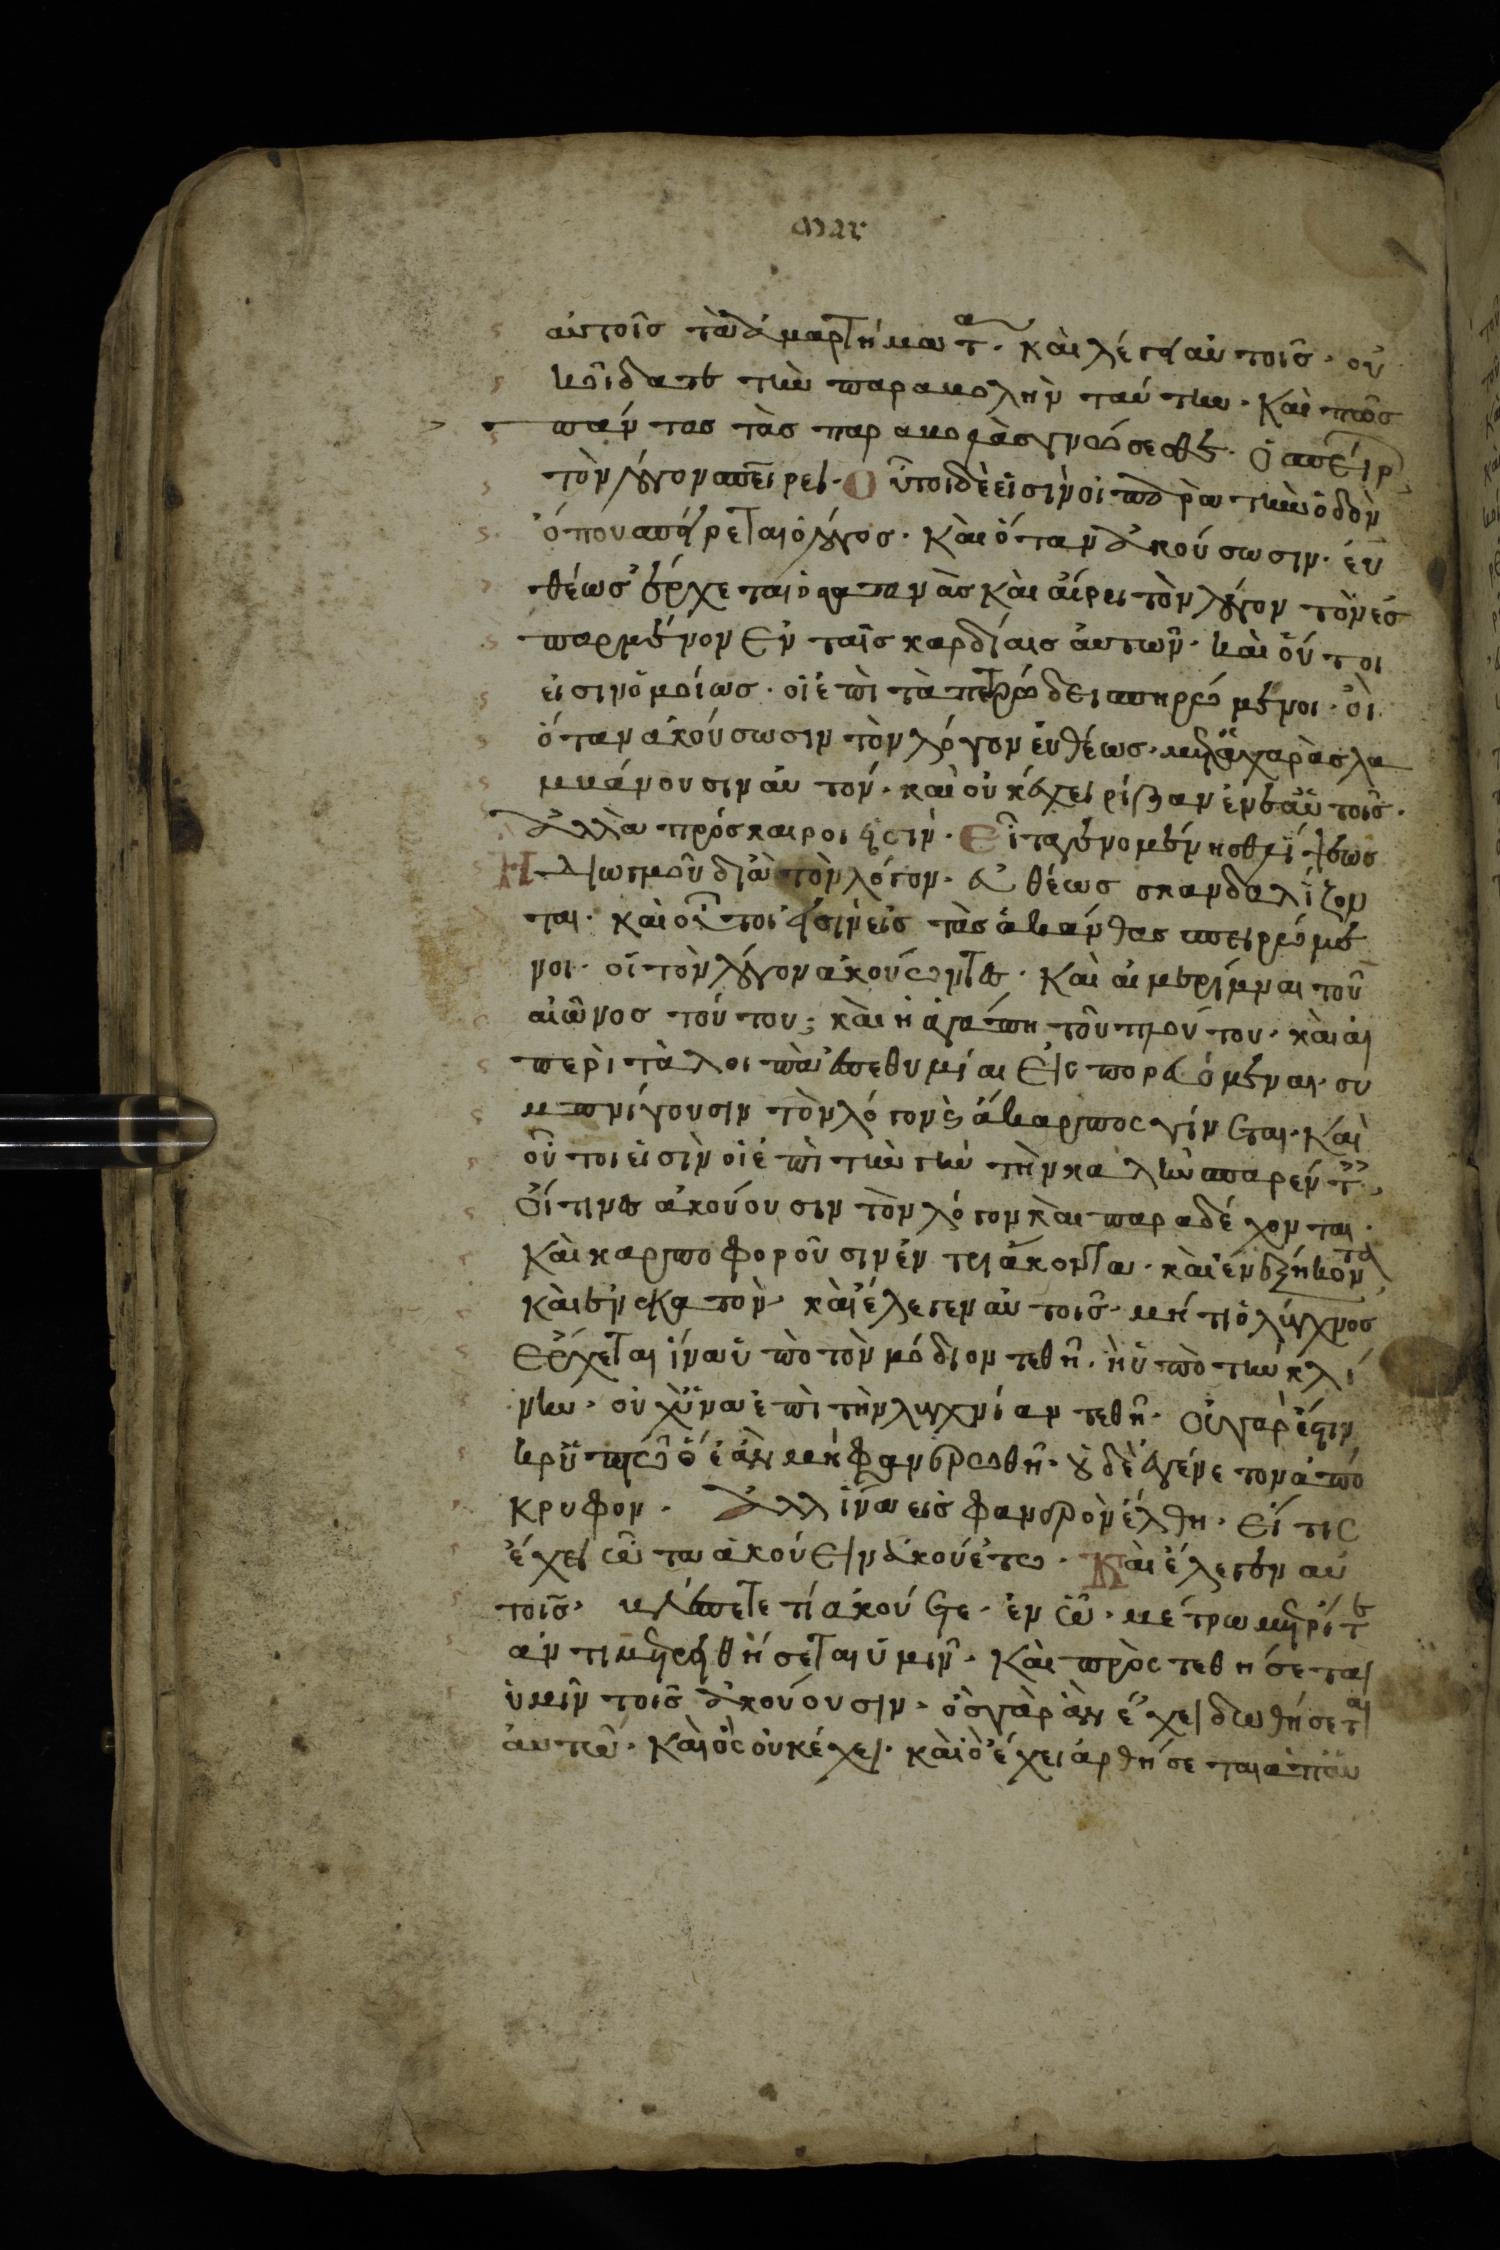 Mar
αὐτοῖς τὰ ἁμαρτήματα· καὶ λέγει αὐτοῖς· οὐ
κοίδατε τὴν παραβολὴν ταύτην· Καὶ πῶς
πάντας τὰς παραβολὰς γνώσεσθε· Ὁ σπείρ
τὸν λόγον σπείρει· Οὗτοι δὲ εἰσὶν οἱ παρὰ τὴν ὁδὸν
ὅπου σπείρεται ὁ λόγος· Καὶ ὅταν ἀκούσωσιν· εὐ
θέως ἔρχεται ὁ σατανᾶς καὶ αἴρει τὸν λόγον τὸν ἐσ
παρμένον ἐν ταῖς καρδίαις αὐτῶν· καὶ οὗτοι
εἰσιν ὁμοίως· οἱ ἐπὶ τὰ πετρώδει σπηρώμενοι· οἳ
ὅταν ἀκούσωσιν τὸν λόγον εὐθέως· μετὰ χαρᾶς λα
μβάνουσιν αὐτόν· καὶ οὐκ ἔχει ρίζαν ἐν ἑαυτοῖς·
Ἀλλὰ πρόσκαιροι εἰσίν· Εἶτα γενομένης θλίψεως
Ἢ διωγμοῦ διὰ τὸν λόγον· εὐθέως σκανδαλίζον
ται· καὶ οὗτοι εἰσὶν εἰς τὰς ἀκάνθας σπειρώμε
νοι· οἱ τὸν λόγον ἀκούωντες· Καὶ αἱ μερίμναι τοῦ
αἰῶνος τούτου· καὶ ἡ ἀγάπη τοῦ πλούτου· καὶ αἱ
περὶ τὰ λοιπὰ ἐπεθυμίαι εἰσπορευόμεναι· συ
μπνίγουσιν τὸν λόγον καὶ ἄκαρπος γίνεται· Καὶ
οὗτοι εἰσὶν οἱ ἐπὶ τὴν γὴν τὴν καλὴν σπαρέντες
Οἵτινες ἀκούουσιν τὸν λόγον καὶ παραδέχονται·
Καὶ καρποφοροῦσιν ἓν τριάκοντα· καὶ ἓν ἑξήκοντα
καὶ ἓν ἑκατόν· καὶ ἔλεγεν αὐτοῖς· μή τι ὁ λύχνος
Ἔρχεται ἵνα ὑπὸ τὸν μόδιον τεθῆ· ἢ ὑπὸ τὴν κλί
νην· οὐχ ἵνα ἐπὶ τὴν λυχνίαν τεθῆ· Οὐ γὰρ ἐστιν
κρύπτω ὃ ἐὰν μὴ φανερωθῆ· οὐδὲ ἐγένετο ἀπό
κρυφον· Ἀλλ ἵνα εἰς φανερὸν ἔλθη· Εἴ τις
ἔχει ὦτα ἀκούειν ἀκουέτω· Καὶ ἔλεγεν αὐ
τοῖς· βλέπετε τί ἀκούετε· ἐν ὦ· μέτρω μετρεῖτε
ἀντιμετρηθήσεται ὑμῖν· Καὶ προστεθήσεται
ὑμῖν τοῖς ἀκούουσιν· ὃς γὰρ ἂν ἔχει δωθήσεται
αὐτῶ· Καὶ ὃς οὐκ ἔχει· καὶ ὃ ἔχει ἀρθήσεται ἀπ αὐ